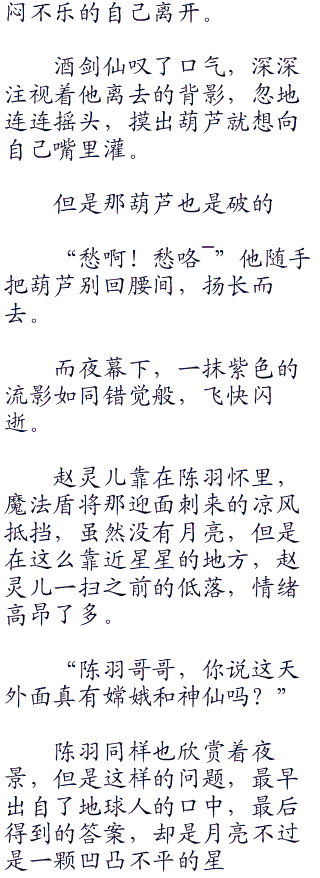 闷不乐的自己离开。
酒剑仙叹了口气，深深
注视着他离去的背影，忽地
连连摇头，摸出葫芦就想向
自己嘴里灌。
但是那葫芦也是破的
“愁啊！愁咯¯”他随手
把葫芦别回腰间，扬长而
去。
而夜幕下，一抹紫色的
流影如同错觉般，飞快闪
逝。
赵灵儿靠在陈羽怀里，
魔法盾将那迎面刺来的凉风
抵挡，虽然没有月亮，但是
在这么靠近星星的地方，赵
灵儿一扫之前的低落，情绪
高昂了多。
“陈羽哥哥，你说这天
外面真有嫦娥和神仙吗？”
陈羽同样也欣赏着夜
景，但是这样的问题，最早
出自了地球人的口中，最后
得到的答案，却是月亮不过
是一颗凹凸不平的星